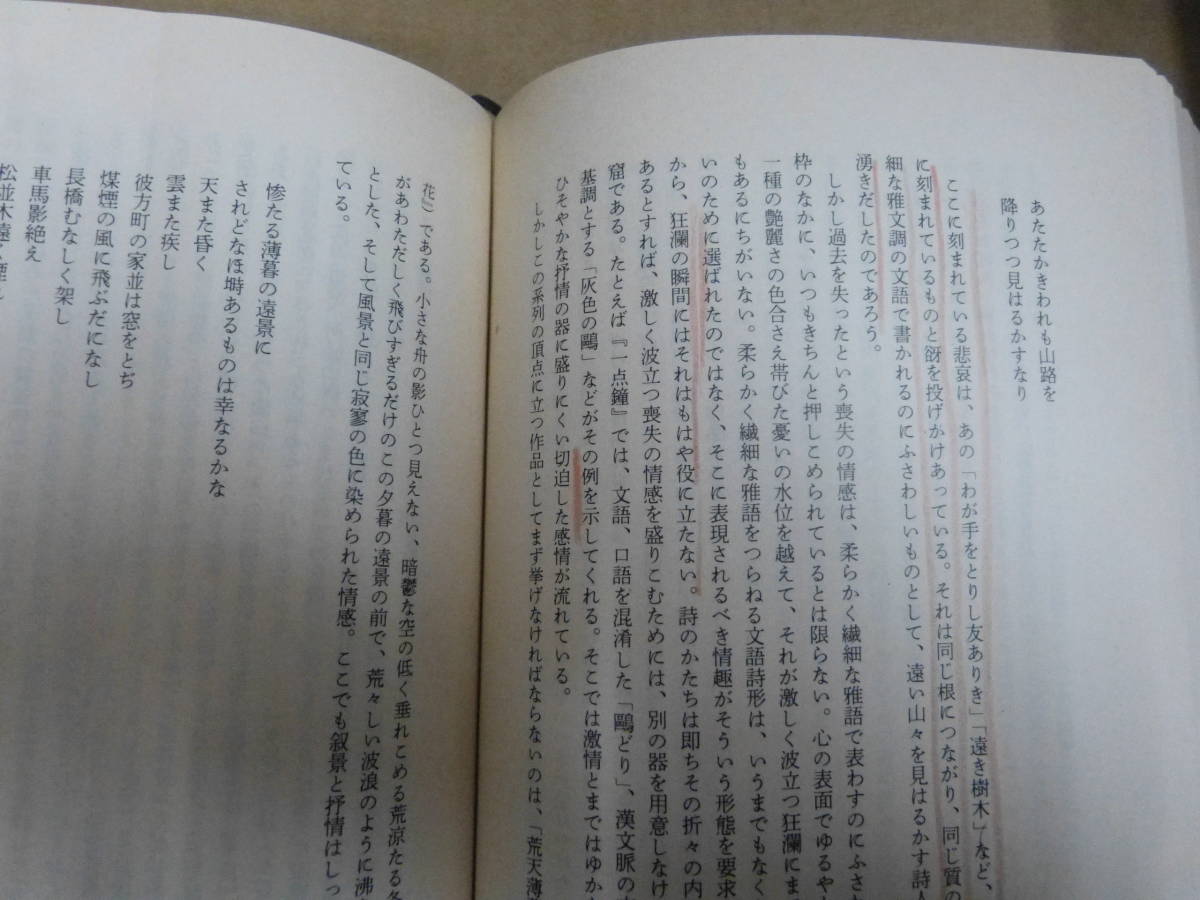 あたたかきわれも山路を
降りつつ見はるかすなり
ここに刻まれている悲哀は、あの「わが手をとりし友ありき」「遠き樹木」など、
に刻まれているものと谺を投げかけあっている。それは同じ根につながり、同じ質の
細な雅文調の文語で書かれるのにふさわしいものとして、遠い山々を見はるかす詩人
湧きだしたのであろう。
しかし過去を失ったという喪失の情感は、柔らかく繊細な雅語で表わすのにふさ
枠のなかに、いつもきちんと押しこめられているとは限らない。心の表面でゆるや
一種の艶麗さの色合さえ帯びた憂いの水位を越えて、それが激しく波立つ狂瀾にま
もあるにちがいない。柔らかく繊細な雅語をつらねる文語詩形は、いうまでもなく
いのために選ばれたのではなく、そこに表現されるべき情趣がそういう形態を要求
から、狂瀾の瞬間にはそれはもはや役に立たない。詩のかたちは即ちその折々の内
あるとすれば、激しく波立つ喪失の情感を盛りこむためには、別の器を用意しなけ
窟である。たとえば『一点鐘』では、文語、口語を混淆した「鷗どり」、漢文脈の
基調とする「灰色の鷗」などがその例を示してくれる。そこでは激情とまではゆか
ひそやかな抒情の器に盛りにくい切迫した感情が流れている。
しかしこの系列の頂点に立つ作品としてまず挙げなければならないのは、「荒天薄
花』である。小さな舟の影ひとつ見えない、暗鬱な空の低く垂れこめる荒涼たる冬
があわただしく飛びすぎるだけのこの夕暮の遠景の前で、荒々しい波浪のように沸
とした、そして風景と同じ寂寥の色に染められた情感。ここでも叙景と抒情はしっ
ている。
惨たる薄暮の遠景に
されどなほ塒あるものは幸なるかな
天また昏く
雲また疾し
彼方町の家並は窓をとぢ
煤煙の風に飛ぶだになし
長橋むなしく架し
車馬影絶え
松並木遠く煙